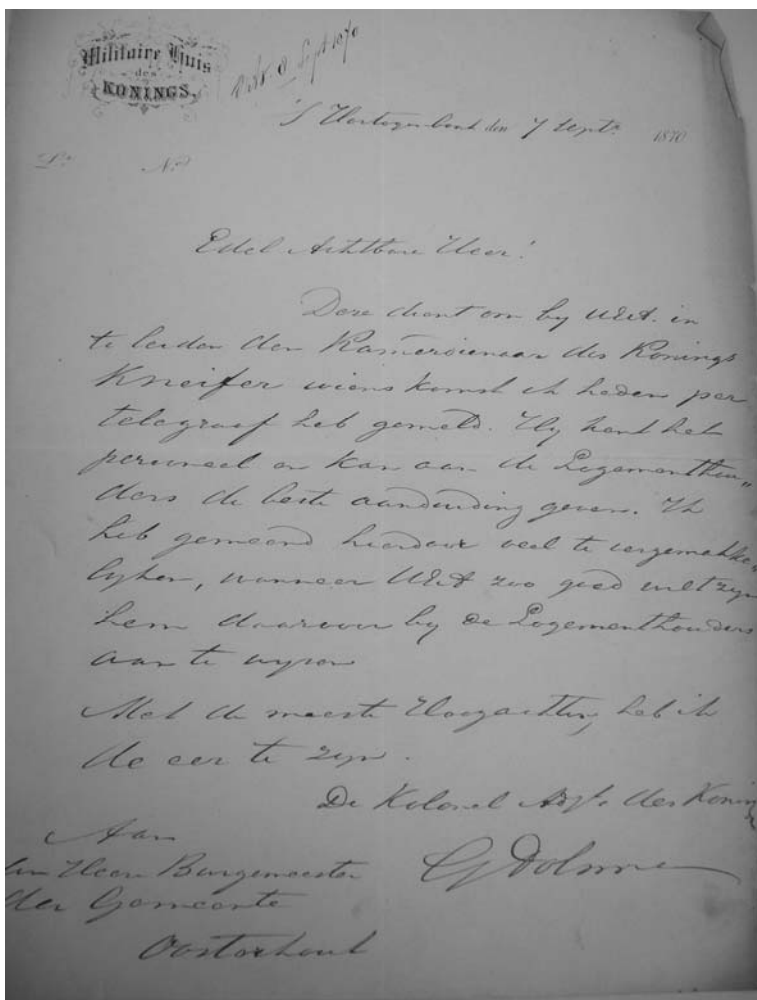 Militaire Huis
des
KONINGS.
8 Sept 1870
'S Hertogenbosch den 7 Sept. 1870
Lr. No.
Edel Achtbare Heer!
Deze dient om by UEA. in
te leiden den Kamerdienaar des Konings
Kneifer wiens komst ik heden per
telegraaf heb gemeld. Hy kent het
personeel en kan aan de Logementhou„
ders de beste aanduiding geven. Ik
heb gemeend hierdoor veel te vergemakke„
lyken, wanneer UEA zoo goed wilt zyn
hem daarvoor by de Logementhouders
aan te wyzen
Met de meeste Hoogachting heb ik
de eer te zyn.
De Kolonel Adjt. des Konings
Aan
den Heer Burgemeester
der Gemeente
Oosterhout